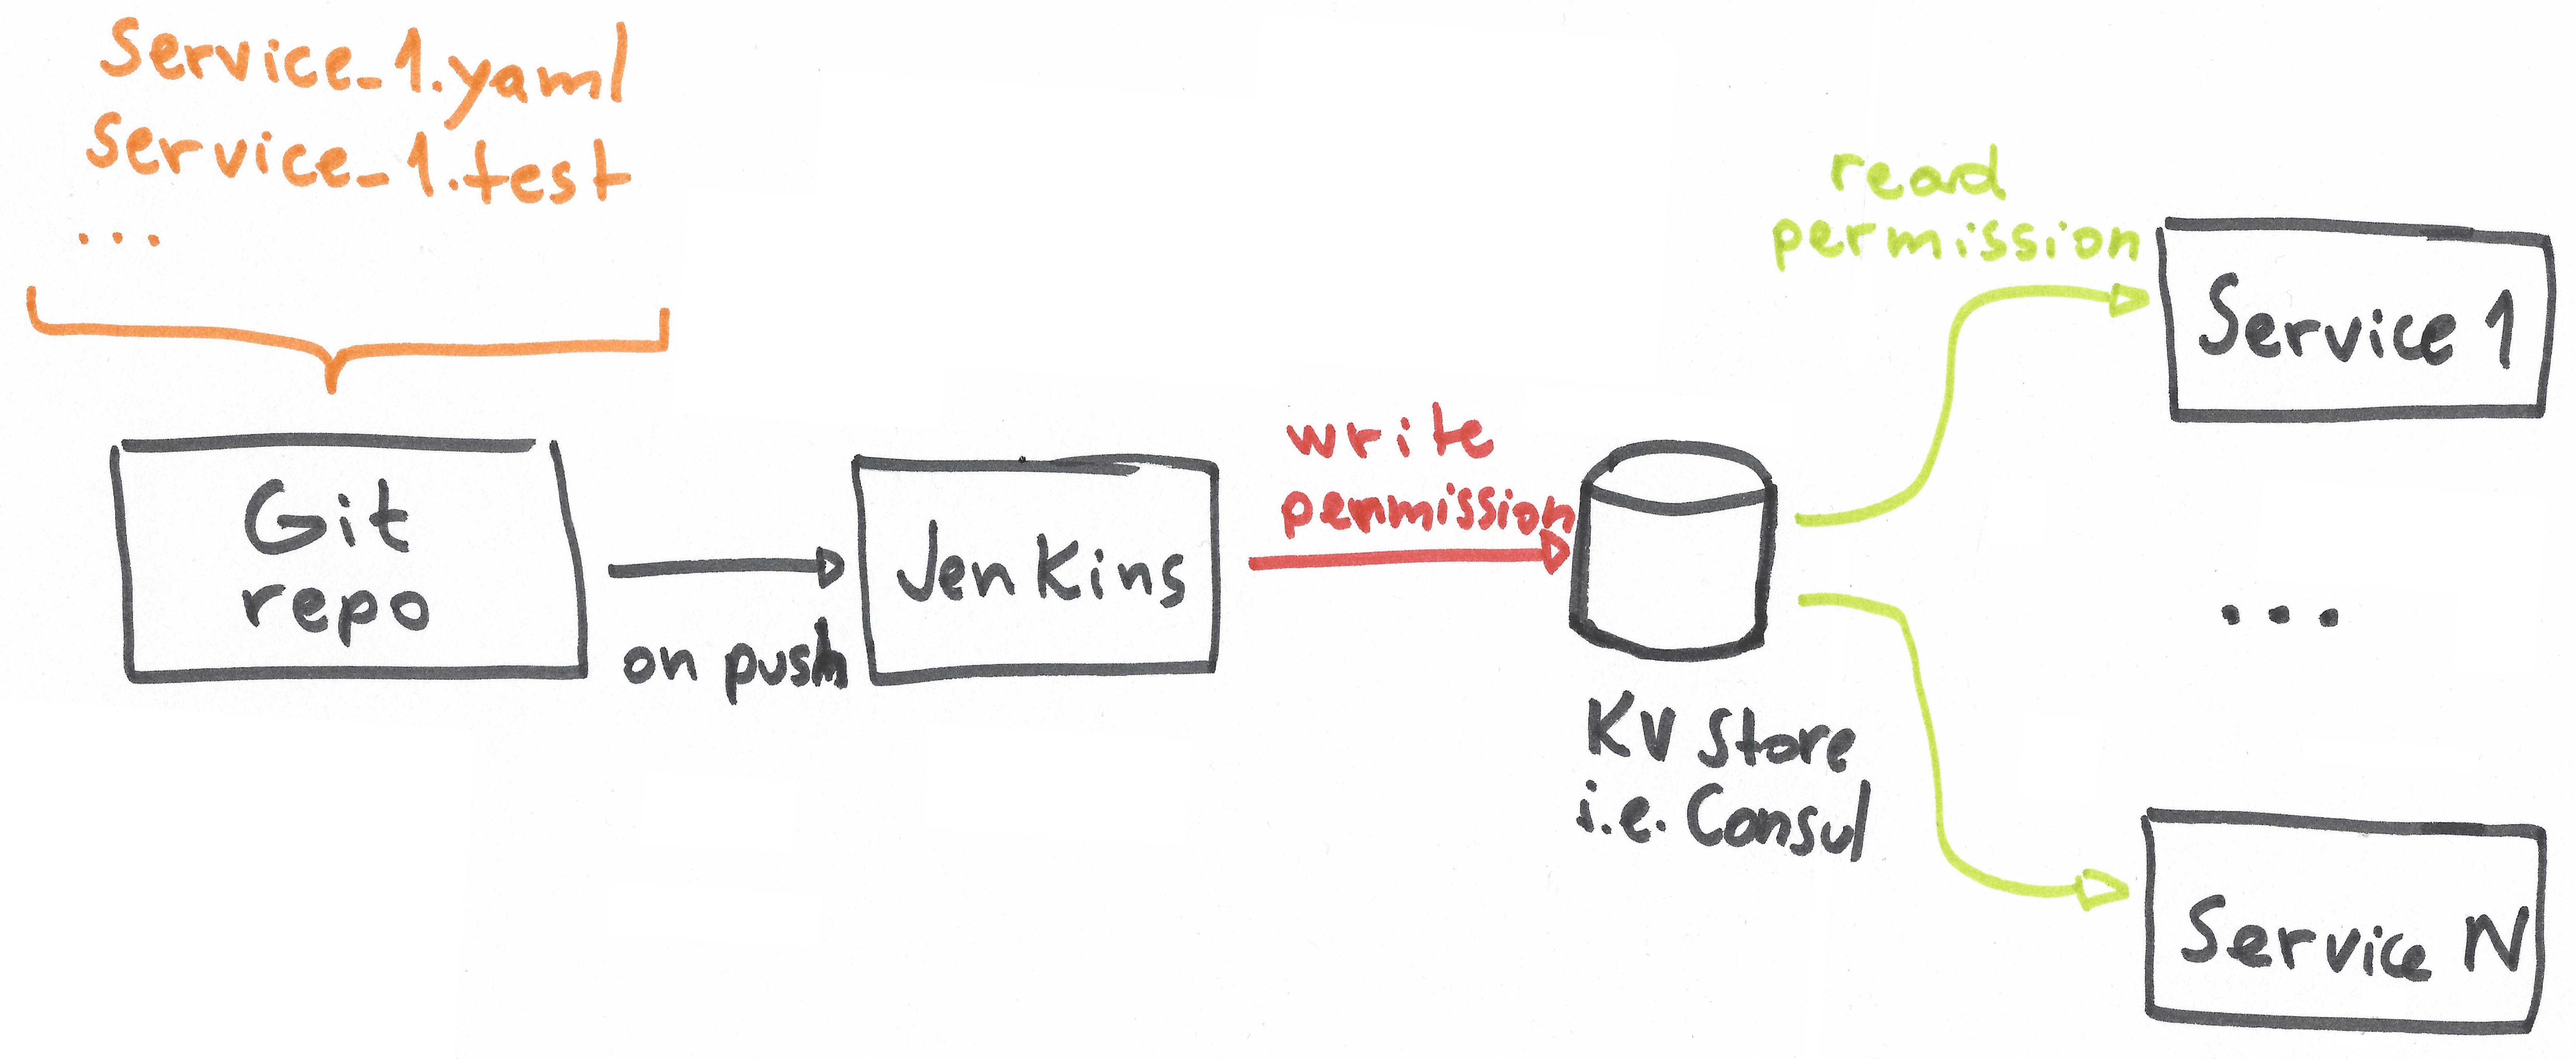 Service_1.yaml
Service_1.test
...
Git
repo
on push
Jenkins
write
permission
KV Store
i.e. Consul
read
permission
Service 1
...
Service N